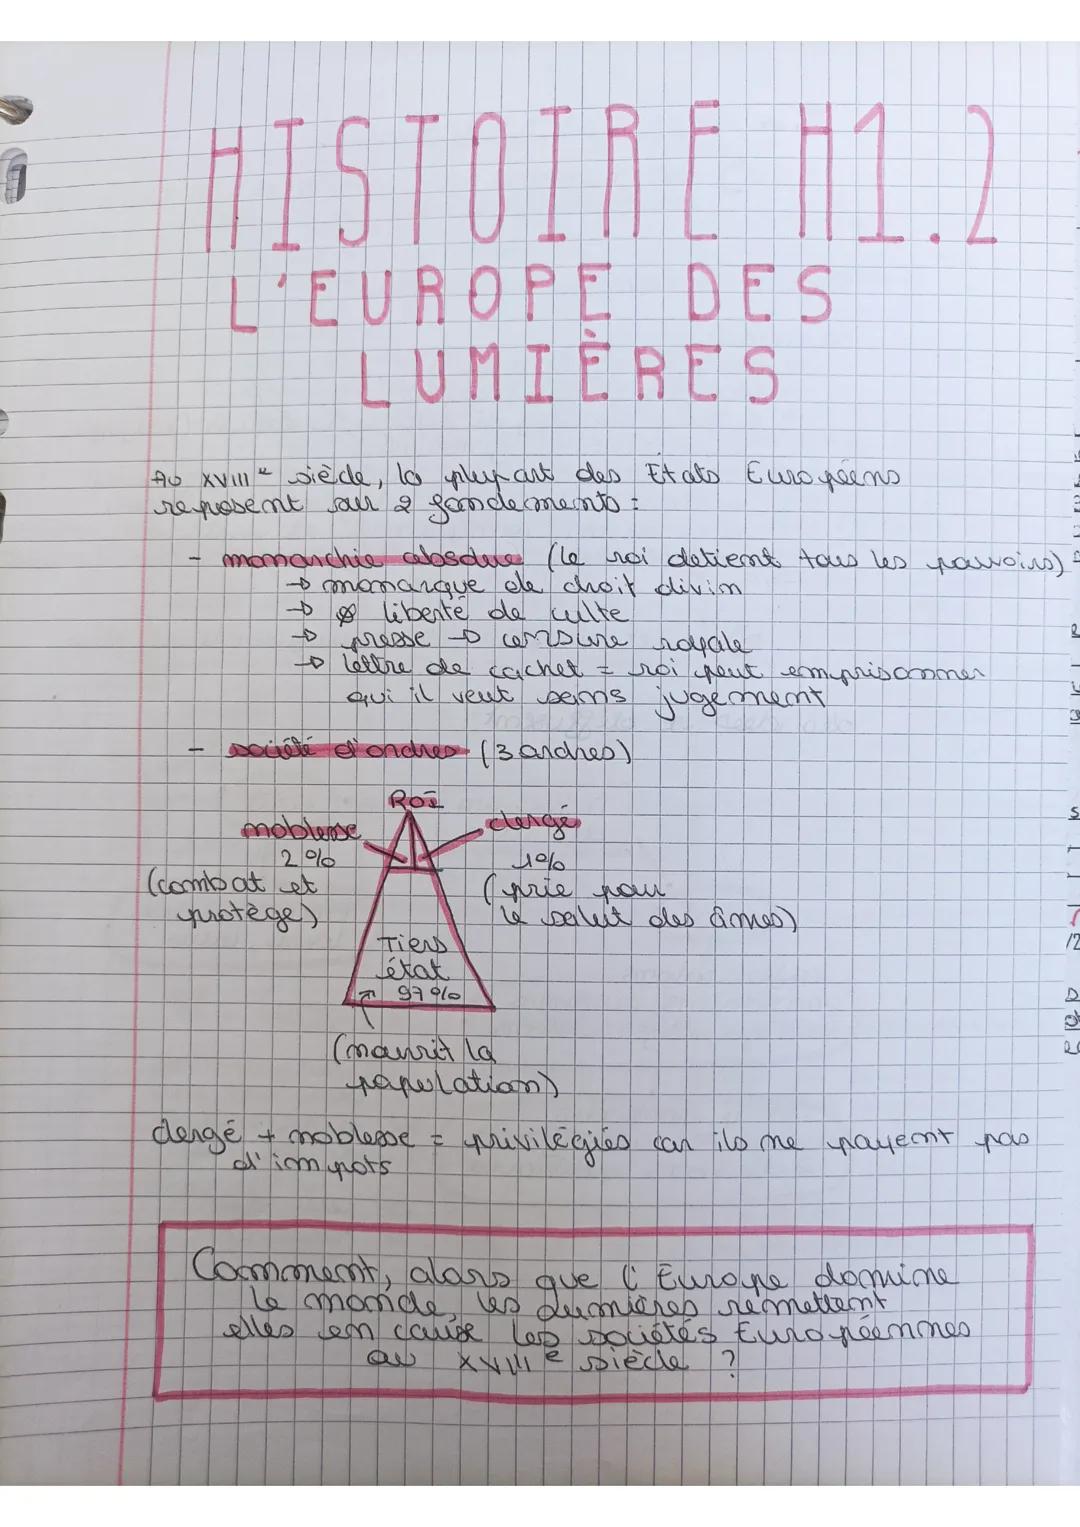 HISTOIRE H1.2
L'EUROPE DES
LUMIÈRES
Au XVIIIe siècle, la plupart des États Européens
reposent sur 2 fondements :
- monarchie absolue (le roi detient tous les pouvoirs)
→ monarque de droit divin
→ ∅ liberté de culte
→ presse → censure royale
→ lettre de cachet = roi peut emprisonner
qui il veut sans jugement
- société d'ordres (3 ordres)
ROI
noblesse
2%
(combat et
protège)
clergé
1%
(prie pour
le salut des âmes)
Tiers
état
97%
(nourrit la
population)
clergé + noblesse = privilégiés car ils ne payent pas
d'impots
Comment, alors que l'Europe domine
le monde, les Lumières remettent
elles en cause les sociétés Européennes
au XVIIIe siècle ?